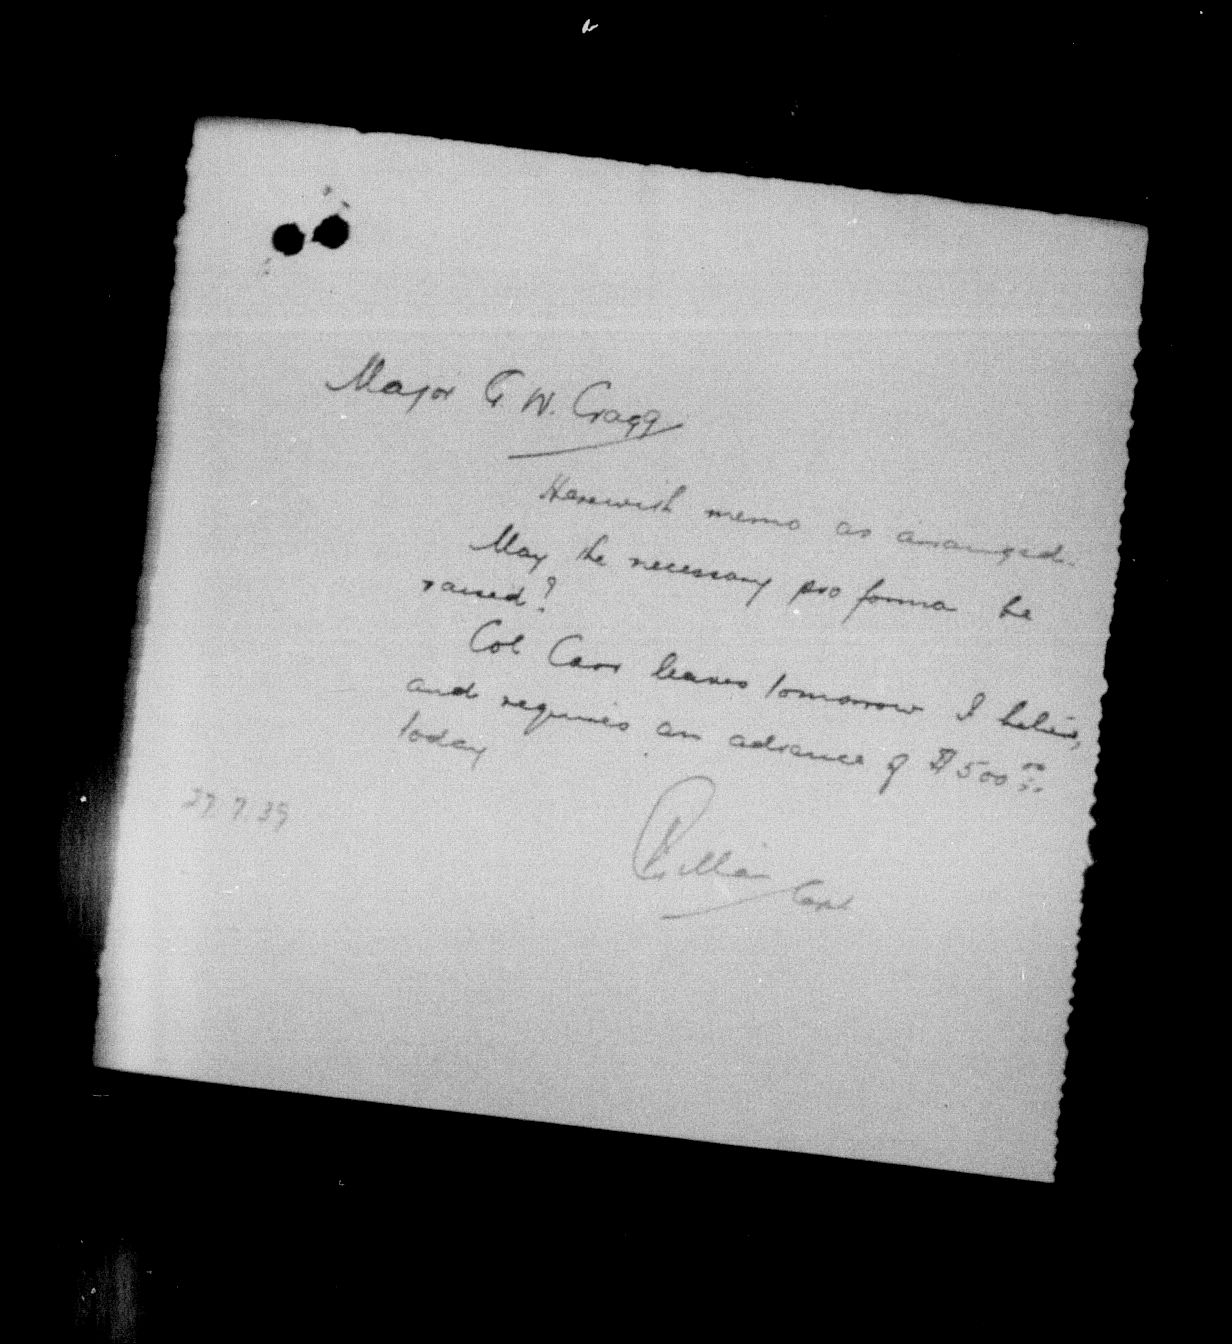 Major G W. Cragg
Herewith memo as arranged.
May the necessary pro forma be
raised?
Col Carr leaves tomorrow I believe,
and requires an advance of $500 00
today
27.7.39
Capt